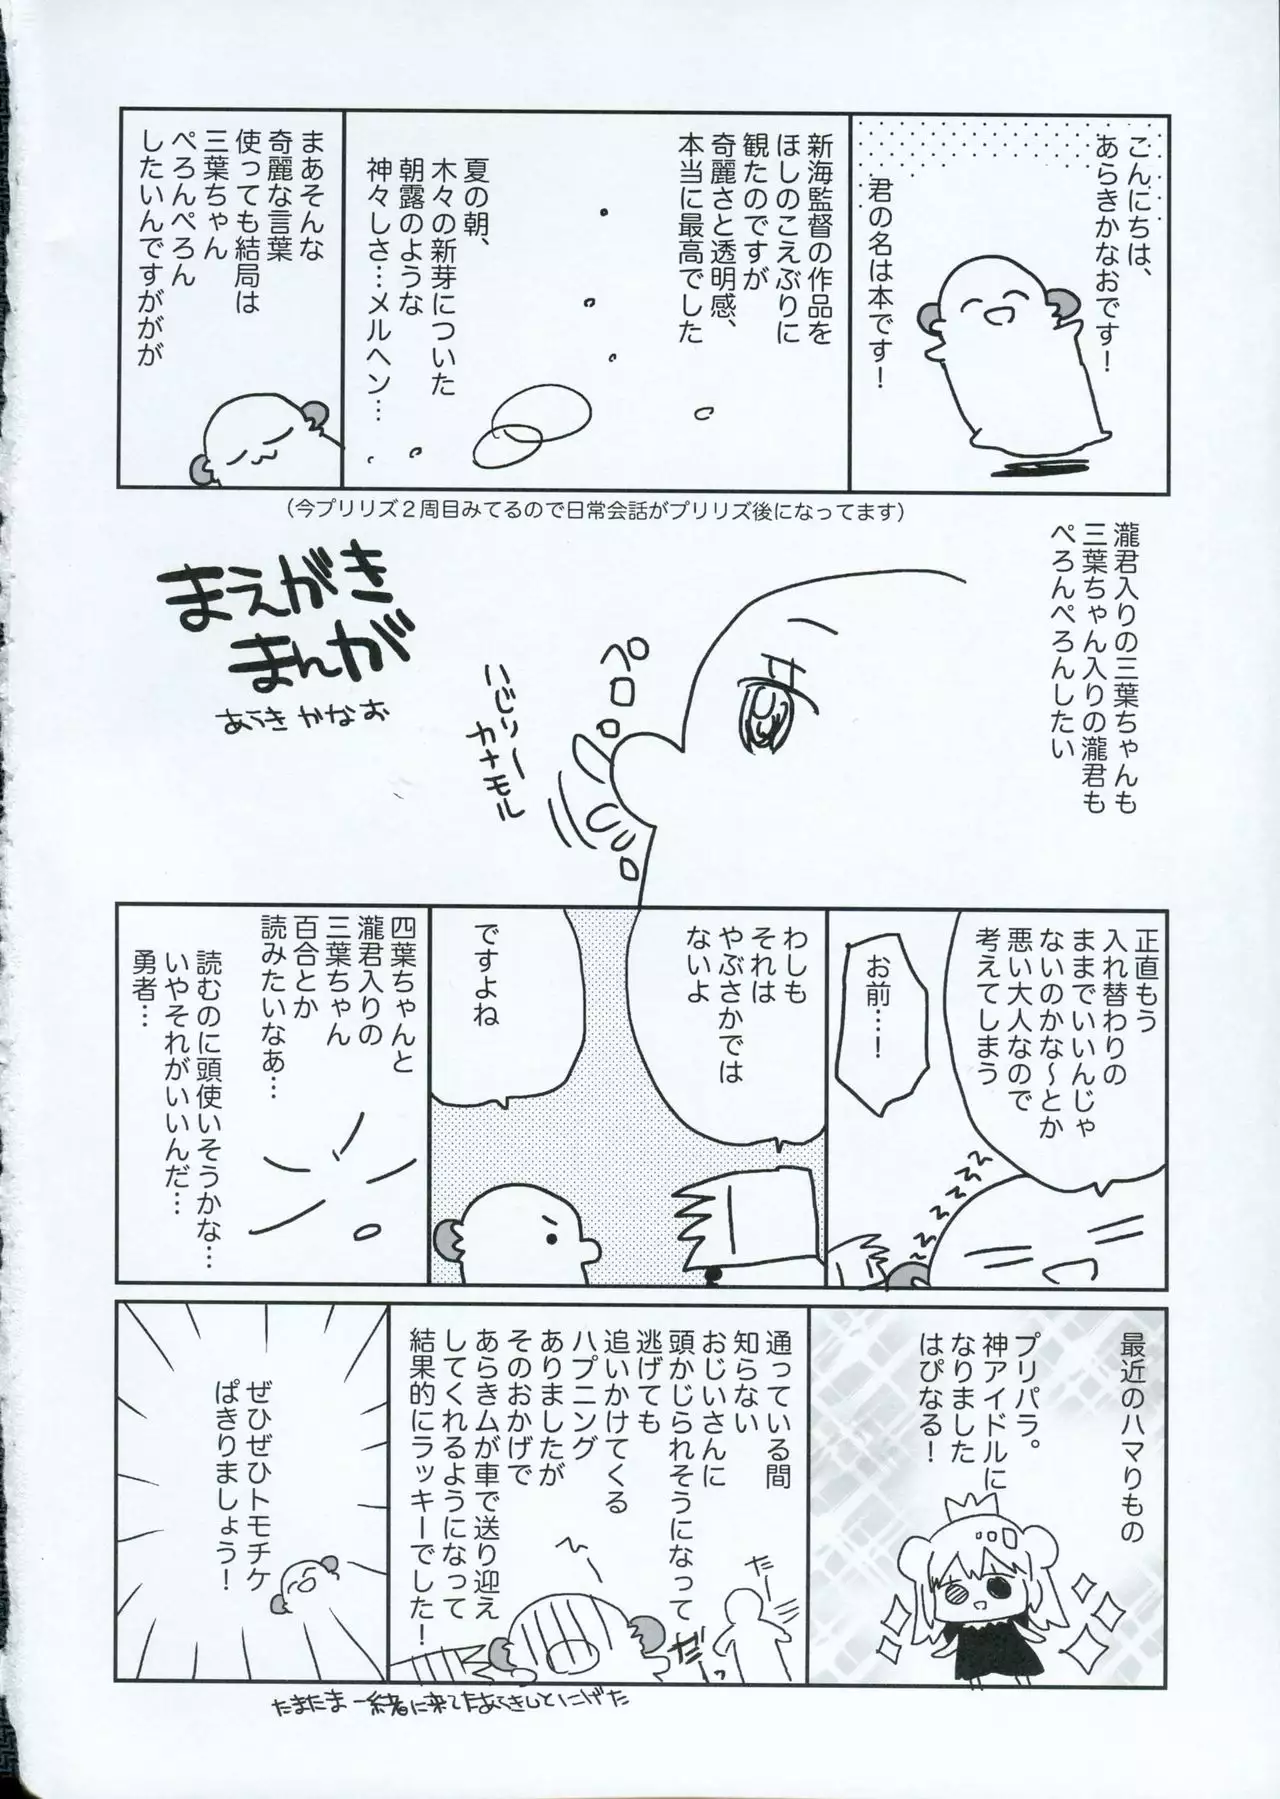 こんにちは、
あらきかなおです！
君の名は本です！
新海監督の作品を
ほしのこえぶりに
観たのですが
奇麗さと透明感、
本当に最高でした
夏の朝、
木々の新芽についた
朝露のような
神々しさ…メルヘン…
まあそんな
奇麗な言葉
使っても結局は
三葉ちゃん
ぺろんぺろん
したいんですががが
（今プリリズ２周目みてるので日常会話がプリリズ後になってます）
瀧君入りの三葉ちゃんも
三葉ちゃん入りの瀧君も
ぺろんぺろんしたい
ペロペロ
ハじリー
カナモル
まえがき
まんが
あらきかなお
正直もう
入れ替わりの
ままでいいんじゃ
ないのかな〜とか
悪い大人なので
考えてしまう
お前…！
わしも
それは
やぶさかでは
ないよ
ですよね
四葉ちゃんと
瀧君入りの
三葉ちゃん
百合とか
読みたいなぁ…
読むのに頭使いそうかな…
いやそれがいいんだ…
勇者…
最近のハマりもの
プリパラ。
神アイドルに
なりました
はぴなる！
通っている間
知らない
おじいさんに
頭かじられそうになって
逃げても
追いかけてくる
ハプニング
ありましたが
そのおかげで
あらきムが車で送り迎え
してくれるようになって
結果的にラッキーでした！
だー
だっ
たまたま一緒に来てたあらきしとにげた
ぜひぜひトモチケ
ぱきりましょう！